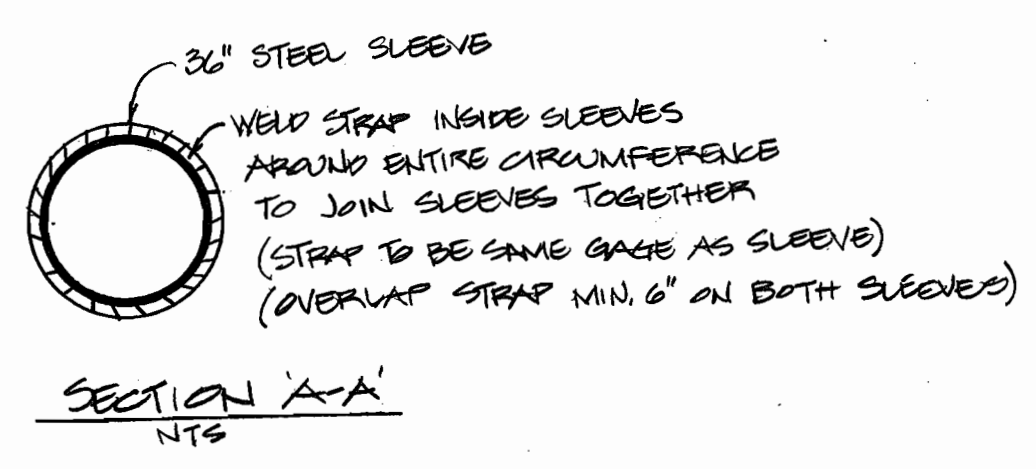 36" STEEL SLEEVE
WELD STRAP INSIDE SLEEVES
AROUND ENTIRE CIRCUMFERENCE
TO JOIN SLEEVES TOGETHER
(STRAP TO BE SAME GAGE AS SLEEVE)
(OVERLAP STRAP MIN. 6" ON BOTH SLEEVES)
SECTION 'A-A'
NTS